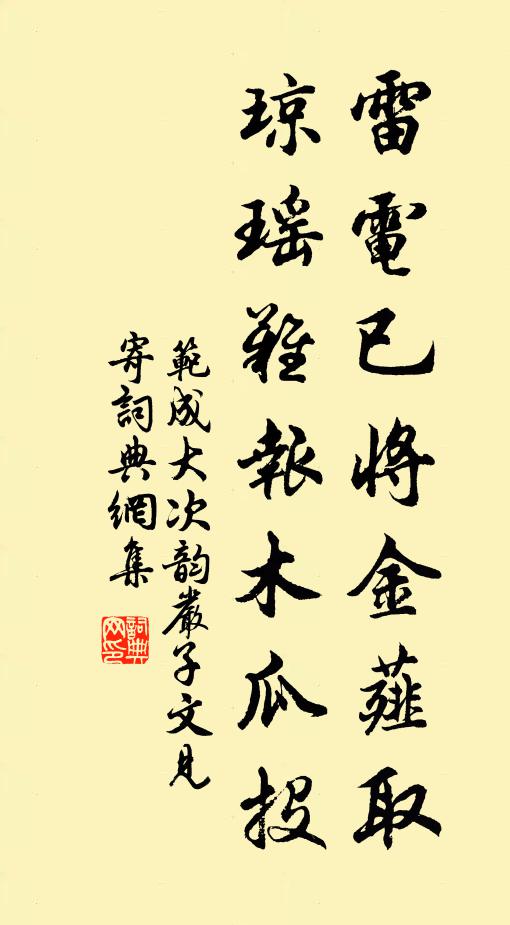 雷電已將金薤取
瓊瑤難報木瓜投
範成大次韵嚴子文見
寄詞典網集
詞典
网印